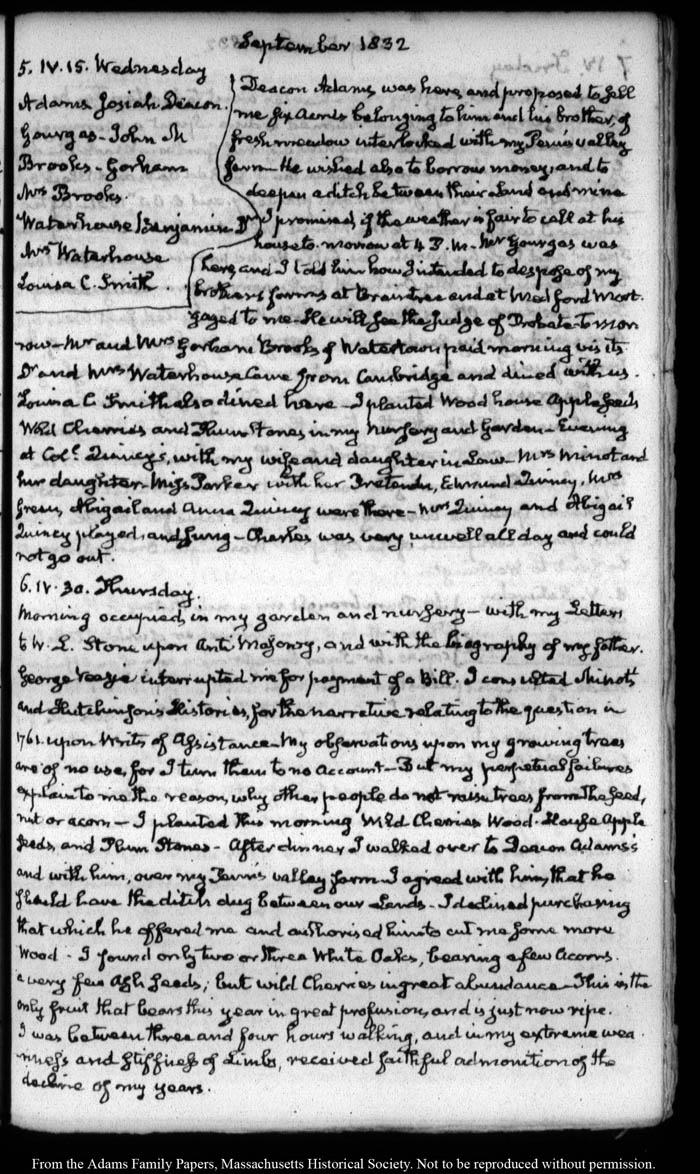 September 1832
5. IV. 15. Wednesday
Adams Josiah Deacon.
Gourgas - John M
Brooks - Gorham
Mrs Brooks.
Waterhouse Benjamin Dr
Mrs Waterhouse
Louisa C. Smith.
Deacon Adams was here, and proposed to sell
me six Acres belonging to him and his brother, of
fresh meadow interlocked with my Penn's valley
farm - He wished also to borrow money, and to
deepen a ditch between their Land and mine
I promised if the weather is fair to call at his
house to-morrow at 4 P.M. - Mr Gourgas was
here, and I told him how I intended to dispose of my
brother's farms at Braintree and at Medford Mort-
gaged to me - He will see the Judge of Probate to mor-
row - Mr and Mrs Gorham Brooks of Watertown paid morning visits
Dr and Mrs Waterhouse came from Cambridge and dined with us.
Louisa C Smith also dined here - I planted Wood house Apple seeds
Wild Cherries and Plum Stones in my nursery and Garden - Evening
at Col. Quincy's, with my wife and daughter in Law - Mrs Minot and
her daughter - Miss Parker with her Edmund Quincy, Mrs
Green, Abigail and Anna Quincy were there - Mrs Quincy and Abigail
Quincy played, and sung - Charles was very unwell all day and could
not go out.
6. IV. 30. Thursday.
Morning occupied, in my garden and nursery - with my Letters
to W. L. Stone upon Anti Masonry, and with the biography of my father.
George Veazie interrupted me for payment of a Bill. I consulted Minot's
and Hutchinson's Histories, for the narrative relating to the question in
1761. upon Writs of Assistance - My observations upon my growing trees
are of no use, for I turn them to no account - But my perpetual failures
explain to me the reason, why other people do not raise trees from the seed,
nut or acorn - I planted this morning Wild Cherries Wood-House Apple
seeds, and Plum Stones - After dinner I walked over to Deacon Adams's
and with him, over my Penn's valley farm - I agreed with him, that he
should have the ditch dug between our Lands - I declined purchasing
that which he offered me and authorised him to cut me some more
Wood - I found only two or three White Oaks, bearing a few Acorns.
a very few Ash seeds; but wild Cherries in great abundance - This is the
only fruit that bears this year in great profusion, and is just now ripe.
I was between three and four hours walking, and in my extreme wea-
riness and stiffness of Limbs, received faithful admonition of the
decline of my years.
From the Adams Family Papers, Massachusetts Historical Society. Not to be reproduced without permission.